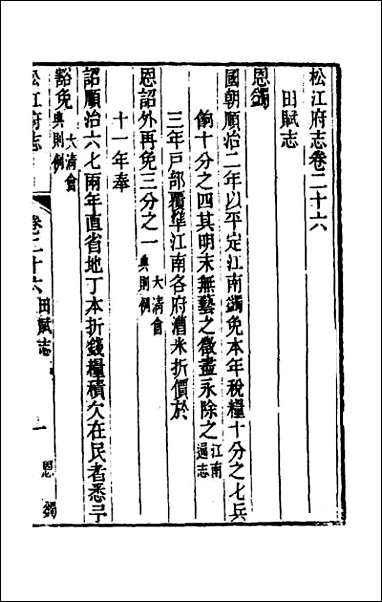 松江府志卷二十六
田賦志
恩蠲
國朝順治二年以平定江南蠲免本年稅糧十分之七兵
餉十分之四其明末無藝之徵盡永除之江南通志
三年戶部覆準江南各府漕米折價於
恩詔外再免三分之一大清會典則例
十一年奉
詔順治六七兩年直省地丁本折錢糧積欠在民者悉予
豁免大清會典則例
松江府志 卷二十六 田賦志 一 恩蠲